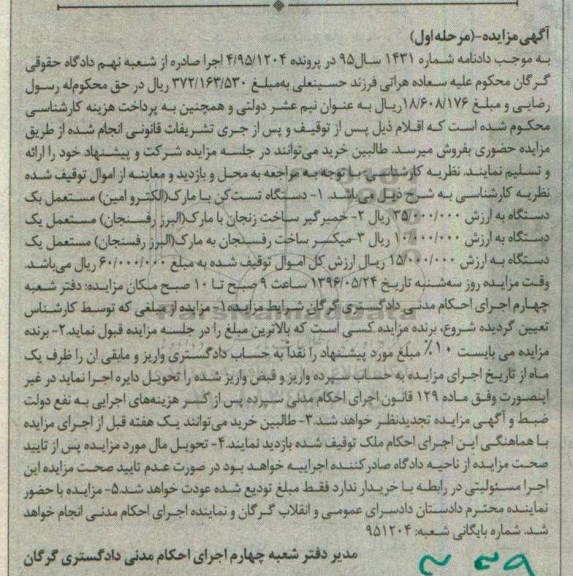 آگهی مزایده-(مرحله اول)
به موجب دادنامه شماره ۱۴۳۱ سال۹۵ در پرونده ۴/۹۵/۱۲۰۴ اجرا صادره از شعبه نهم دادگاه حقوقی
گرگان محکوم علیه سعاده هراتی فرزند حسینعلی به‌مبلغ ۳۷۲/۱۶۳/۵۳۰ ریال در حق محکوم‌له رسول
رضایی و مبلغ ۱۸/۶۰۸/۱۷۶ریال به عنوان نیم عشر دولتی و همچنین به پرداخت هزینه کارشناسی
محکوم شده است که اقلام ذیل پس از توقیف و پس از جری تشریفات قانونی انجام شده از طریق
مزایده حضوری بفروش میرسد. طالبین خرید می‌توانند در جلسه مزایده شرکت و پیشنهاد خود را ارائه
و تسلیم نمایند. نظریه کارشناسی با توجه به مراجعه به محل و بازدید و معاینه از اموال توقیف شده
نظریه کارشناسی به شرح ذیل میباشد. ۱- دستگاه تست‌کن با مارک(الکترو امین) مستعمل یک
دستگاه به ارزش ۳۵/۰۰۰/۰۰۰ ریال ۲- خمیرگیر ساخت زنجان با مارک(البرز رفسنجان) مستعمل یک
دستگاه به ارزش ۱۰/۰۰۰/۰۰۰ ریال ۳-میکسر ساخت رفسنجان به مارک(البرز رفسنجان) مستعمل یک
دستگاه به ارزش ۱۵/۰۰۰/۰۰۰ ریال ارزش کل اموال توقیف شده به مبلغ ۶۰/۰۰۰/۰۰۰ ریال می‌باشد.
وقت مزایده روز سه‌شنبه تاریخ ۱۳۹۶/۰۵/۲۴ ساعت ۹ صبح تا ۱۰ صبح مکان مزایده: دفتر شعبه
چهارم اجرای احکام مدنی دادگستری گرگان شرایط مزایده ۱- مزایده از مبلغی که توسط کارشناس
تعیین گردیده شروع، برنده مزایده کسی است که بالاترین مبلغ را در جلسه مزایده قبول نماید.۲- برنده
مزایده می بایست ۱۰٪ مبلغ مورد پیشنهاد را نقداً به حساب دادگستری واریز و مابقی ان را ظرف یک
ماه از تاریخ اجرای مزایده به حساب سپرده واریز و قبض واریز شده را تحویل دایره اجرا نماید در غیر
اینصورت وفق ماده ۱۲۹ قانون اجرای احکام مدنی سپرده پس از کسر هزینه‌های اجرایی به نفع دولت
ضبط و آگهی مزایده تجدیدنظر خواهد شد.۳- طالبین خرید می‌توانند یک هفته قبل از اجرای مزایده
با هماهنگی این اجرای احکام ملک توقیف شده بازدید نمایند.۴- تحویل مال مورد مزایده پس از تایید
صحت مزایده از ناحیه دادگاه صادر کننده اجراییه خواهد بود در صورت عدم تایید صحت مزایده این
اجرا مسئولیتی در رابطه با خریدار ندارد فقط مبلغ تودیع شده عودت خواهد شد.۵- مزایده با حضور
نماینده محترم دادستان دادسرای عمومی و انقلاب گرگان و نماینده اجرای احکام مدنی انجام خواهد
شد. شماره بایگانی شعبه: ۹۵۱۲۰۴
مدیر دفتر شعبه چهارم اجرای احکام مدنی دادگستری گرگان